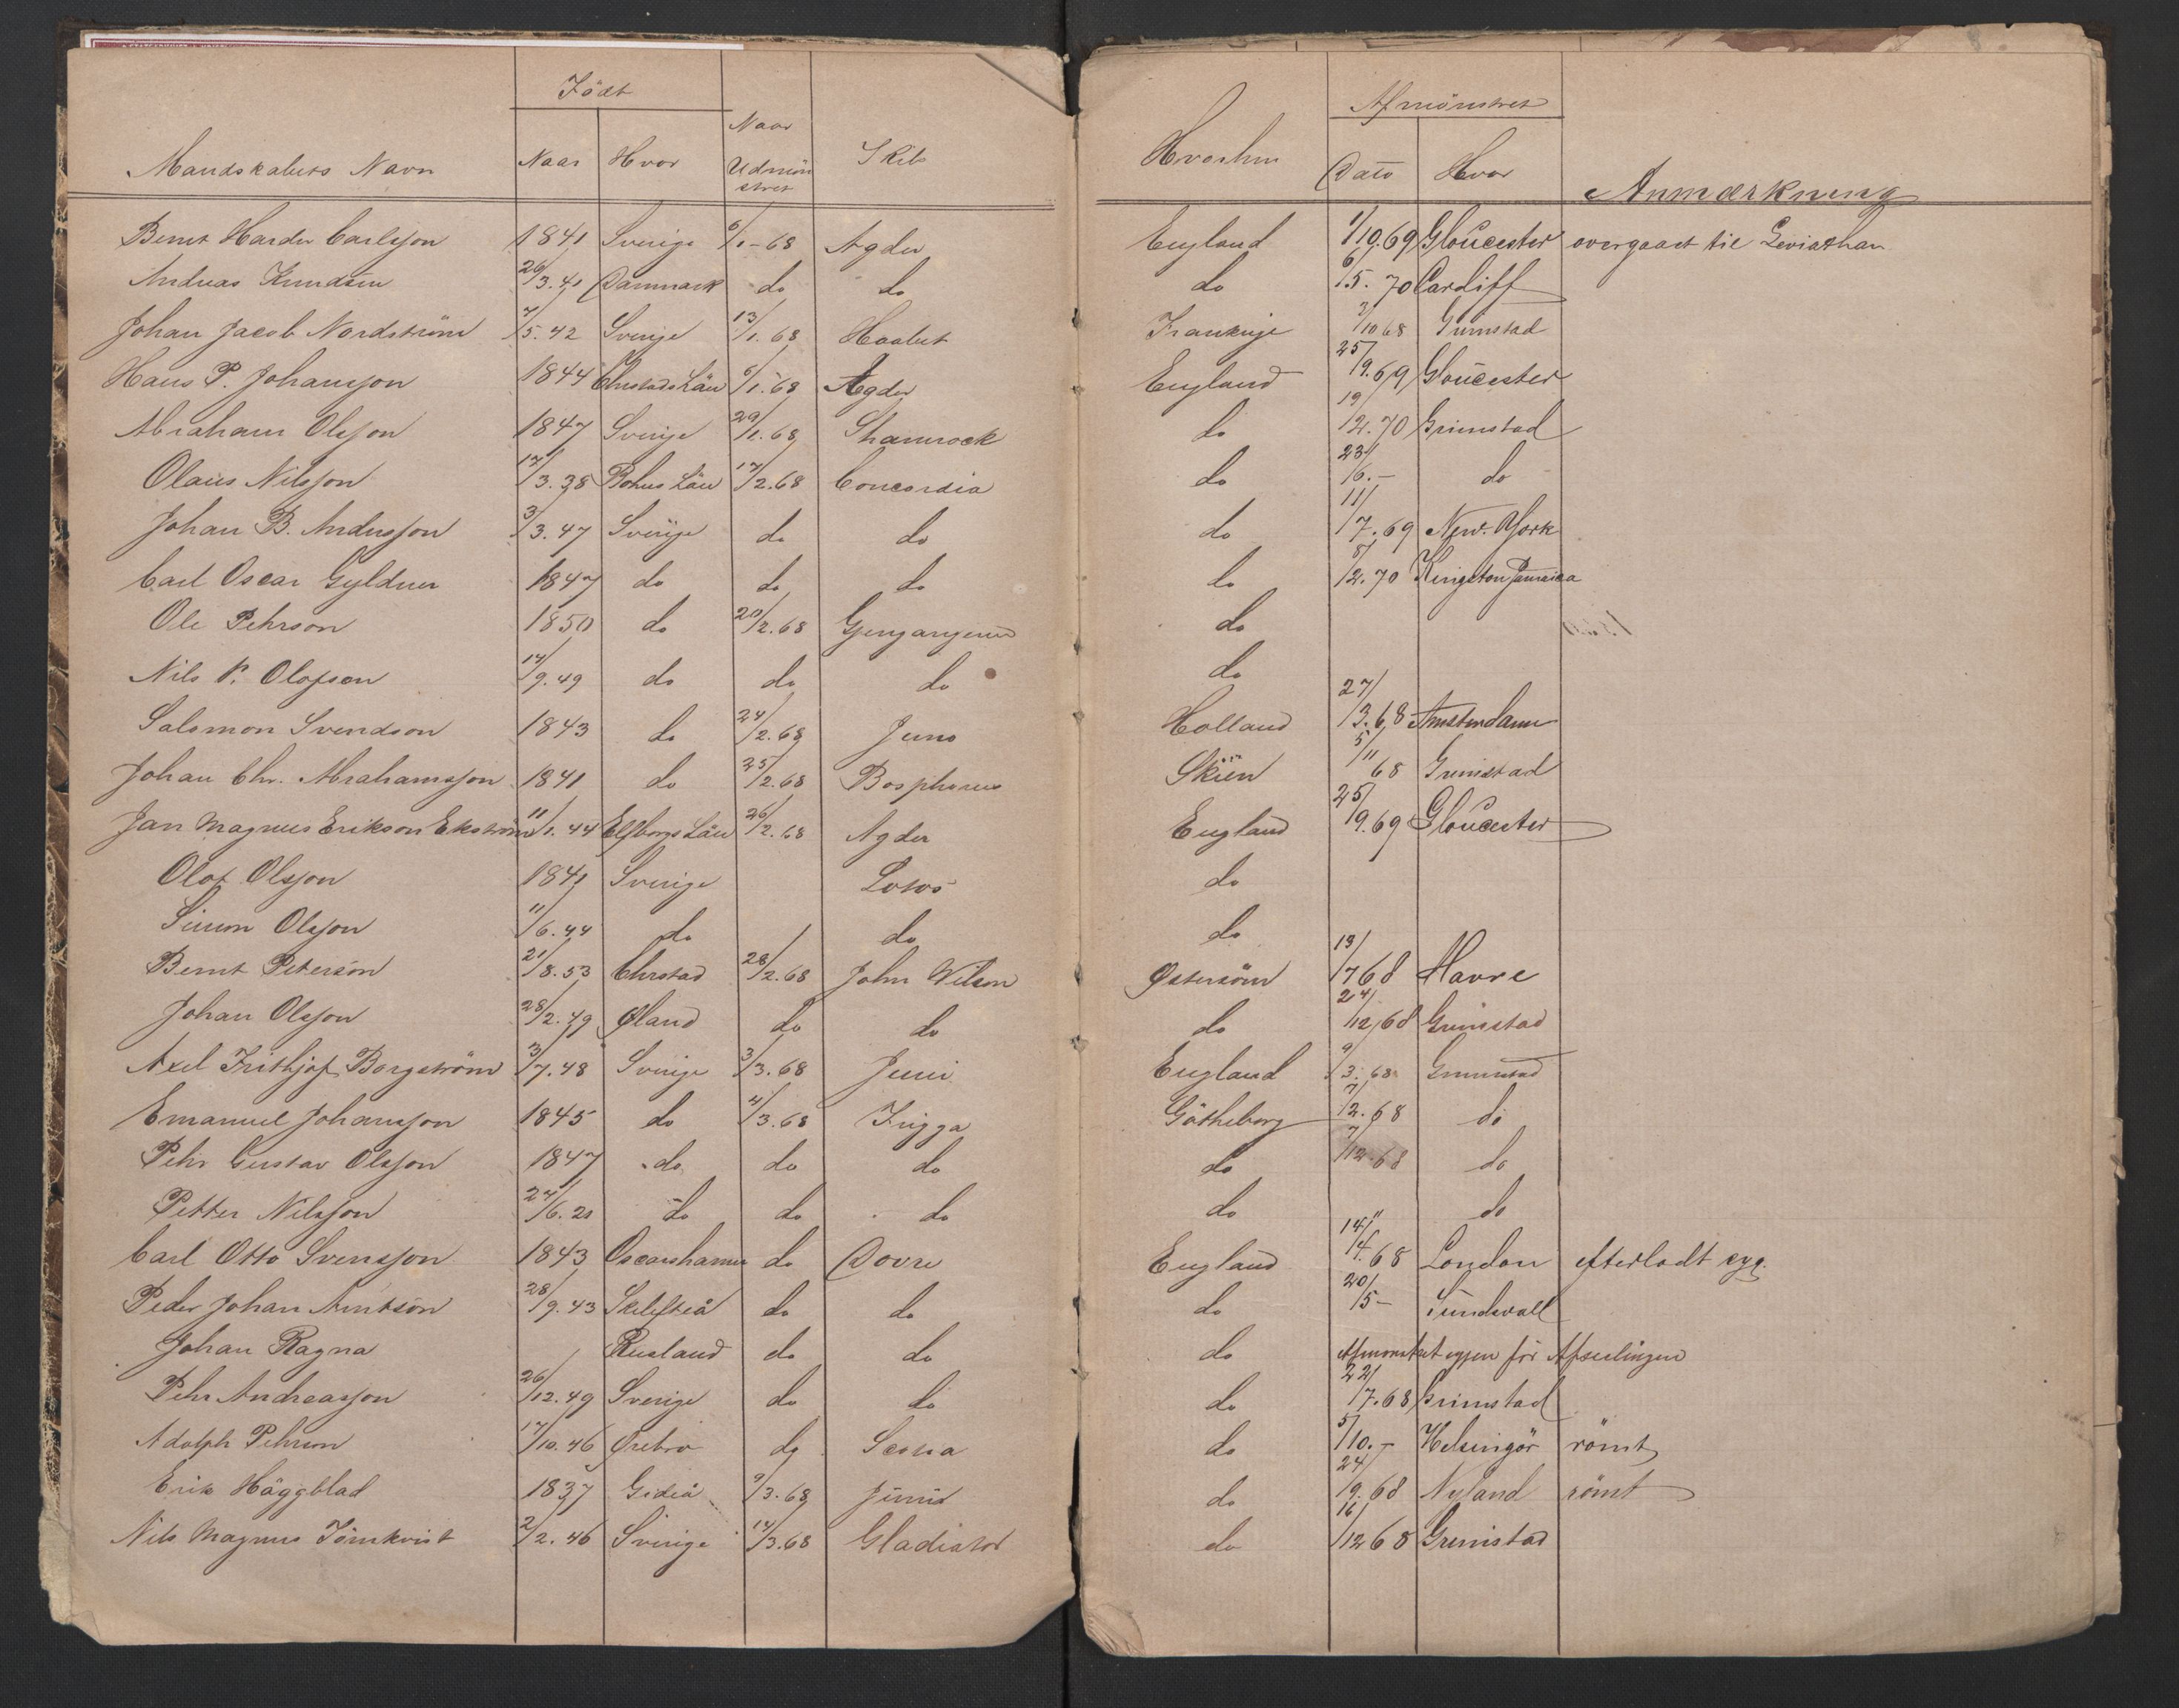 Födt Afmönstret
Mandskabets Navn Naar Hvor Naar Udmönstret Skib Hvorhen Dato Hvor Anmærkning
Bernt Harder Carlsson 1841 Sverige 6/1-68 Agder England 1/10.69 Gloucester overgaaet til Leviathan
Andreas Knudsen 26/3.41 Danmark do do do 6/5.70 Cardiff
Johan Jacob Nordström 7/5.42 Sverige 13/1.68 Haabet Frankrige 2/10 68 Grimstad
Hans P. Johansson 1844 Christads Län 6/1.68 Agder England 25/9.69 Gloucester
Abraham Olsson 1847 Sverige 29/1.68 Shamrock do 19/2.70 Grimstad
Olaus Nilsson 17/3.38 Bohus Län 17/2.68 Concordia do 23/6.- do
Johan B. Andersson 3/3.47 Sverige do do do 11/7.69 New-York
Carl Oscar Gyldner 1847 do do do do 8/2.70 Kingston Jamaica
Ole Pehrson 1850 do 20/2.68 Gjengangeren do
Nils P. Olofson 14/9.49 do do do do
Salomon Svendson 1843 do 24/2.68 Juno Holland 27/3.68 Amsterdam
Johan Chr. Abrahamsson 1841 do 25/2.68 Bosphorus Skien 5/11 68 Grimstad
Jan Magnus Erikson Ekström 11/1.44 Elfborgs Län 26/2.68 Agder England 25/9.69 Gloucester
Olof Olsson 1841 Sverige Lotos do
Simon Olsson 11/6.44 do do do
Bernt Peterson 21/8.53 Christad 28/2.68 John Wilson Østersöen 13/7 68 Havre
Johan Olsson 28/2.49 Øland do do do 24/12 68 Grimstad
Axel Frithjof Borgström 3/7.48 Sverige 3/3.68 Juni England 9/3.68 Grimstad
Emanuel Johansson 1845 do 4/3.68 Frigga Götheborg 7/12.68 do
Pehr Gustav Olsson 1847 do do do do 7/12.68 do
Petter Nilsson 24/6.21 do do do do " do
Carl Otto Svensson 1843 Oscarshamn do Dovre England 14/4.68 London efterladt syg.
Peder Johan Arntson 28/9.43 Skellefteå do do do 20/5- Sundsvall
Johan Ragna Rusland do do do Afmönstret igjen för Afseilingen
Pehr Andreasson 26/12.49 Sverige do do do 22/7.68 Grimstad
Adolph Pehrson 17/10.46 Ørebro do Scotia do 5/10.- Helsingör römt
Erik Häggblad 1837 Gideå 9/3.68 Juno do 24/9.68 Nyland römt
Nils Magnus Törnkvist 2/2.46 Sverige 14/3.68 Gladiator do 16/12 68 Grimstad